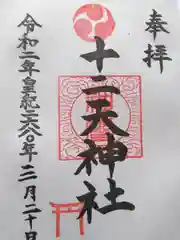 奉拝
十二天神社
令和二年皇紀二六八〇年二月二十日